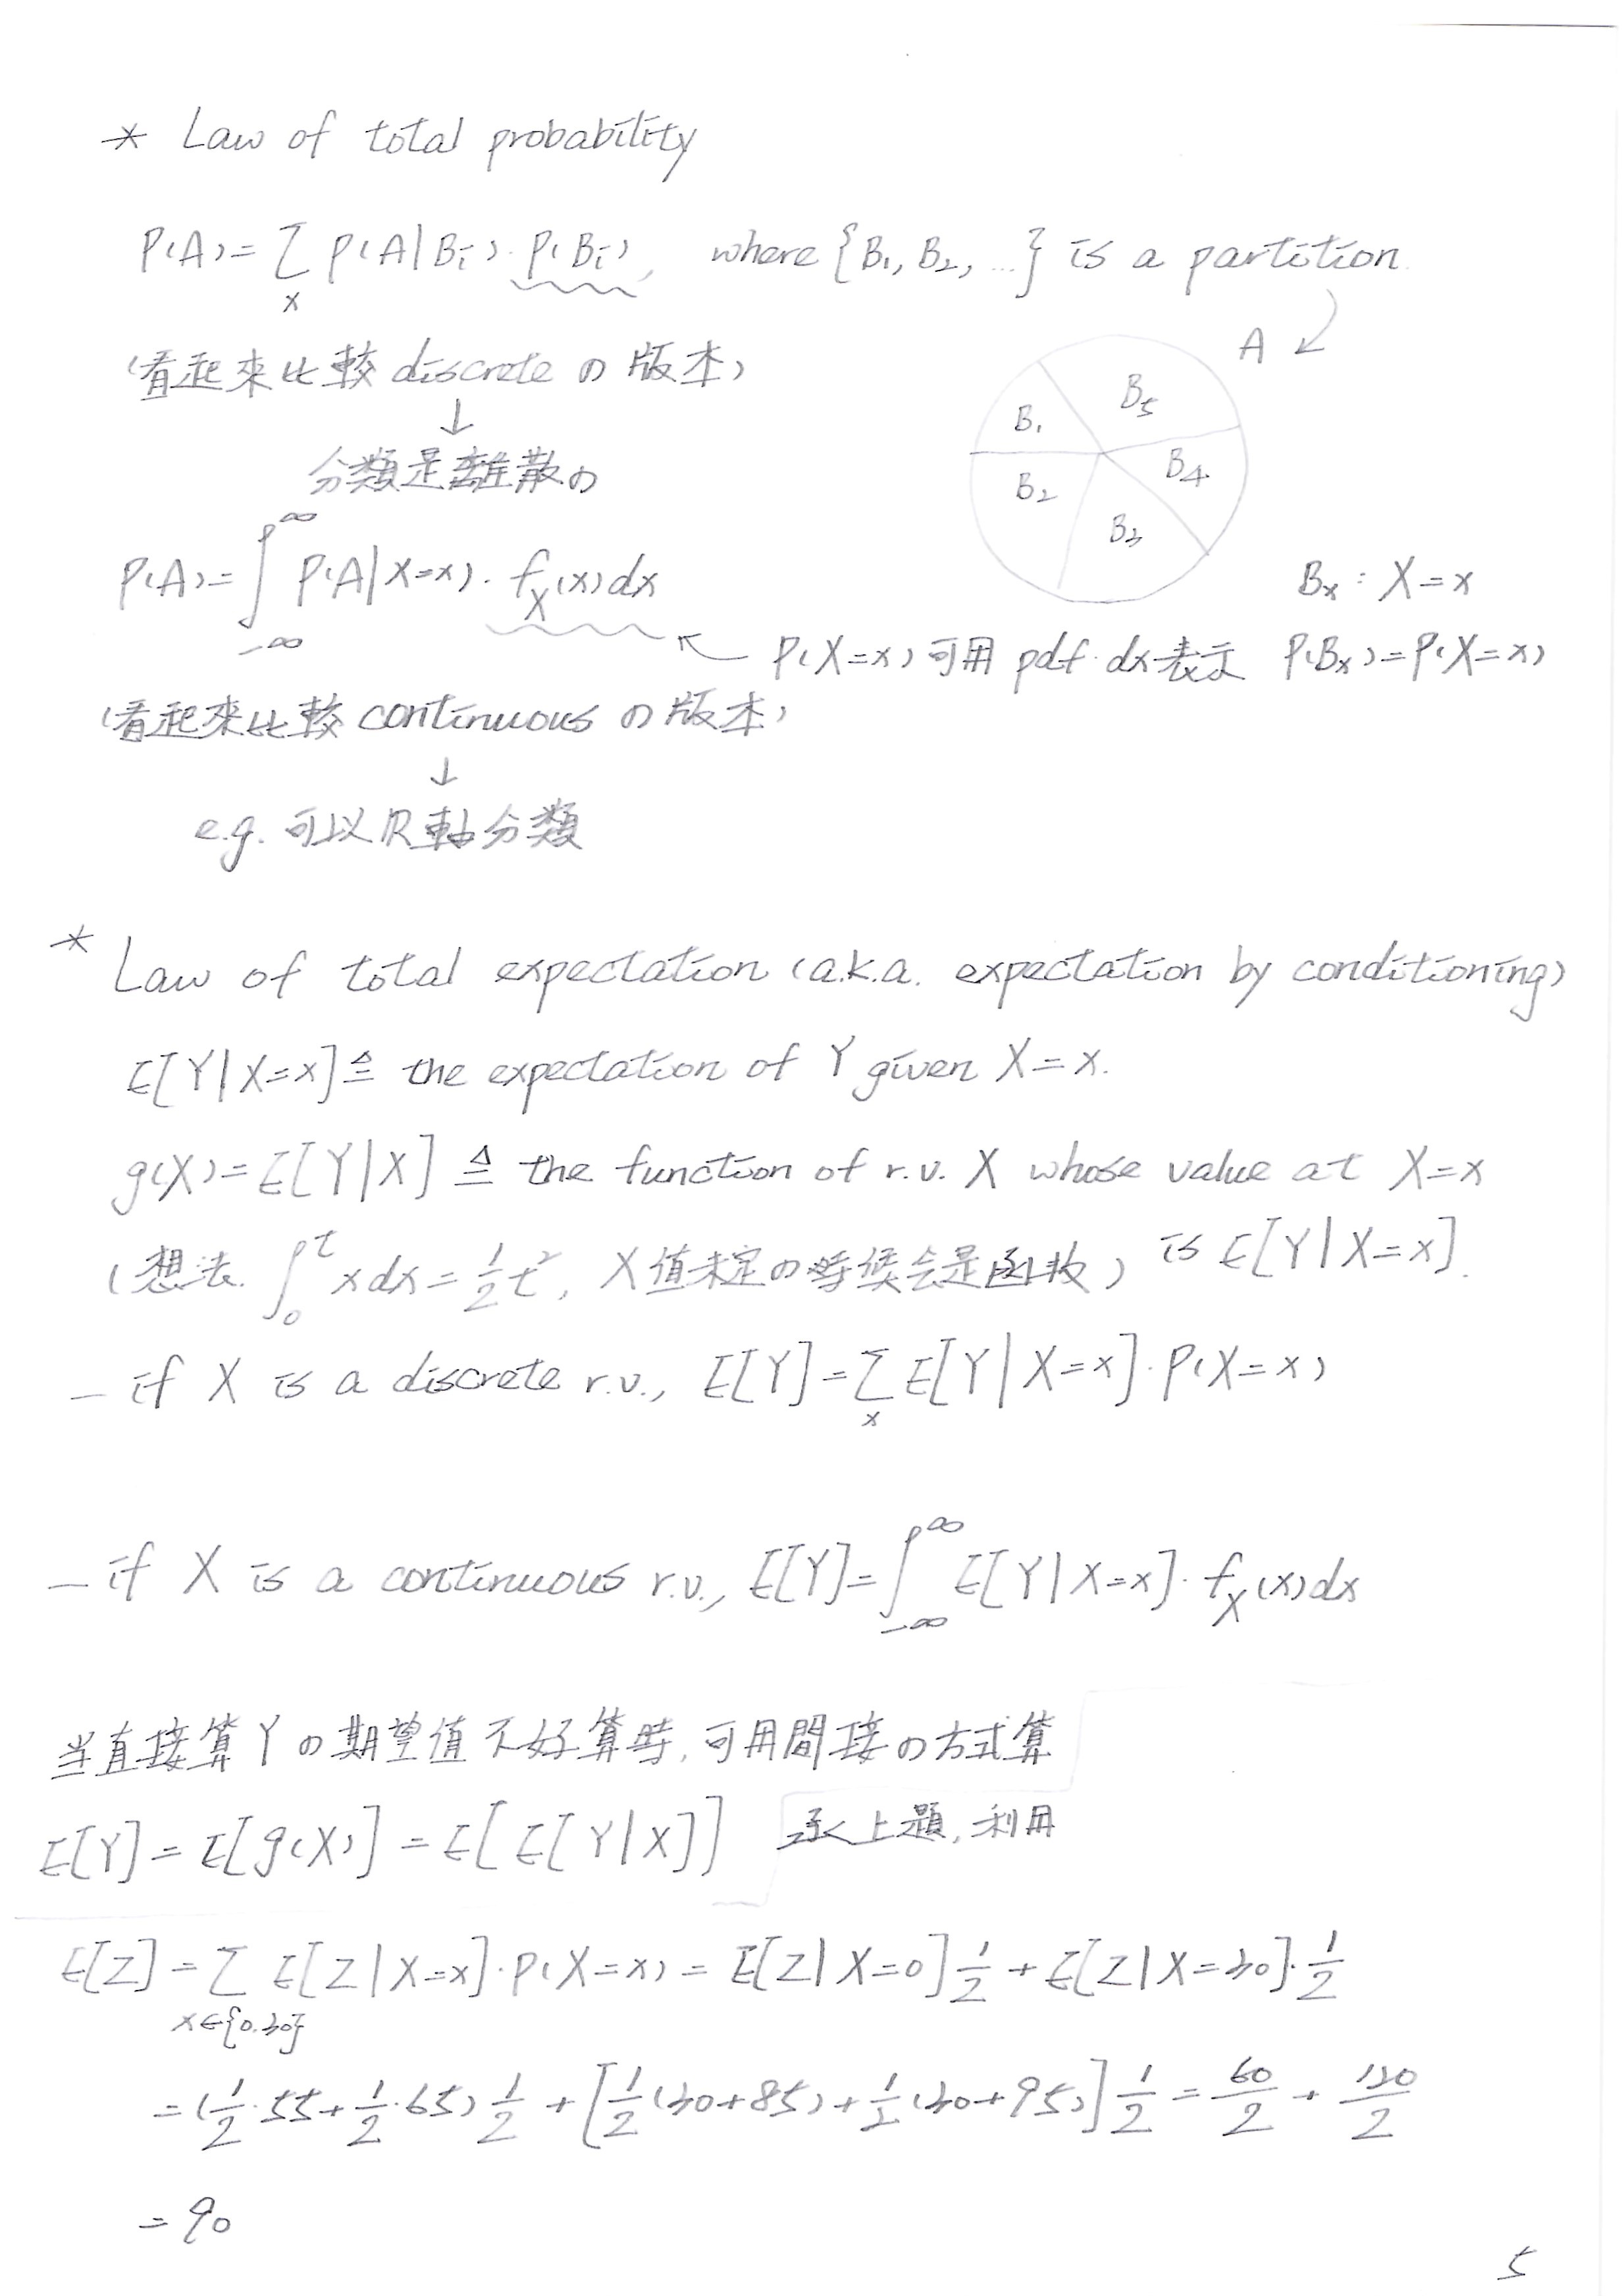 * Law of total probability
P(A) = Σ_x P(A|Bi)·P(Bi), where {B1, B2, ...} is a partition.
(看起來比較 discrete の 版本)
↓
分類是離散の
A
B1 B5
B2 B4
B3
P(A) = ∫_{-∞}^{∞} P(A|X=x)·f_X(x)dx
Bx : X=x
P(X=x) 可用 pdf·dx 表示 P(Bx)=P(X=x)
(看起來比較 continuous の 版本)
↓
e.g. 可以 ℝ 軸分類
* Law of total expectation (a.k.a. expectation by conditioning)
E[Y|X=x] ≜ the expectation of Y given X=x.
g(X) = E[Y|X] ≜ the function of r.v. X whose value at X=x
is E[Y|X=x].
(想法. ∫_0^t xdx = 1/2 t², X值未定の時候会是函数)
- if X is a discrete r.v., E[Y] = Σ_x E[Y|X=x]·P(X=x)
- if X is a continuous r.v., E[Y] = ∫_{-∞}^{∞} E[Y|X=x]·f_X(x)dx
当直接算Yの期望值不好算時, 可用間接の方式算
E[Y] = E[g(X)] = E[E[Y|X]]
承上題, 利用
E[Z] = Σ_{x∈{0,30}} E[Z|X=x]·P(X=x) = E[Z|X=0] 1/2 + E[Z|X=30]·1/2
= (1/2·55 + 1/2·65) 1/2 + [1/2(30+85) + 1/2(30+95)] 1/2 = 60/2 + 120/2
= 90
5